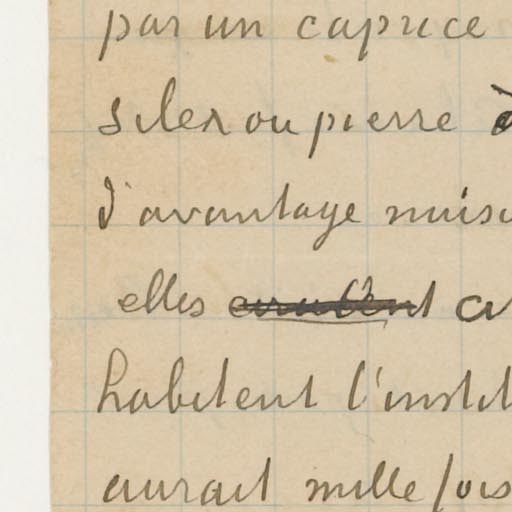 par un caprice
silex ou pierre
d'avantage nuis
elles
habitent l'instit
aurait mille fois